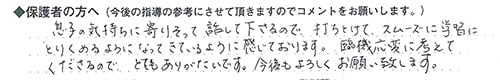 ◆保護者の方へ（今後の指導の参考にさせて頂きますのでコメントをお願いします。）
息子の気持ちに寄りそって話して下さるので、打ちとけて、スムーズに学習に
とりくめるようになってきているように感じております。臨機応変に考えて
くださるので、とてもありがたいです。今後もよろしくお願い致します。